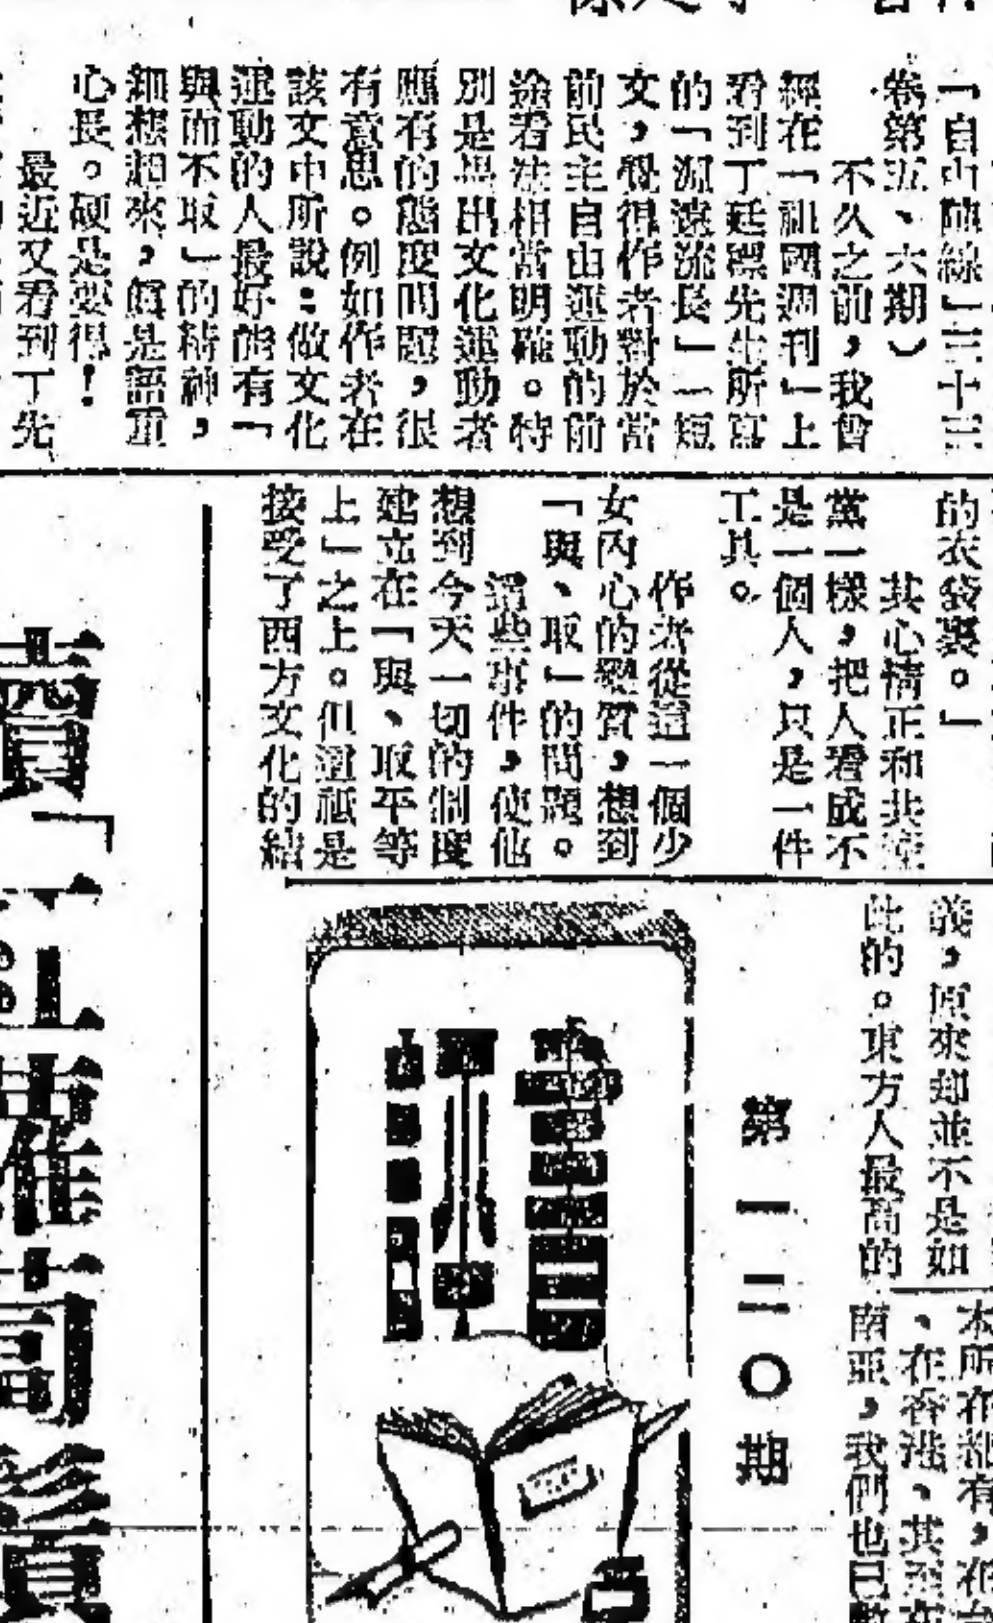 「自由陣線」三十三
卷第五、六期）
不久之前，我曾
經在「祖國週刊」上
看到丁廷標先生所寫
的「源遠流長」一短
文，覺得作者對於當
前民主自由運動的前
途看法相當明確。特
別是提出文化運動者
應有的態度問題，很
有意思。例如作者在
該文中所說：做文化
運動的人最好能有「
與而不取」的精神，
細想起來，眞是語重
心長。硬是要得！
最近又看到丁先
的衣袋裏。」
其心情正和共產
黨一樣，把人看成不
是一個人，只是一件
工具。
作者從這一個少
女內心的變質，想到
「與、取」的問題。
這些事件，使他
想到今天一切的制度
建立在「與、取平等
上」之上。但這祇是
接受了西方文化的結
義，原來却並不是如
此的。東方人最高的
本所在都有，在
、在香港、甚至在
南亞，我們也已
第一二〇期
讀「一